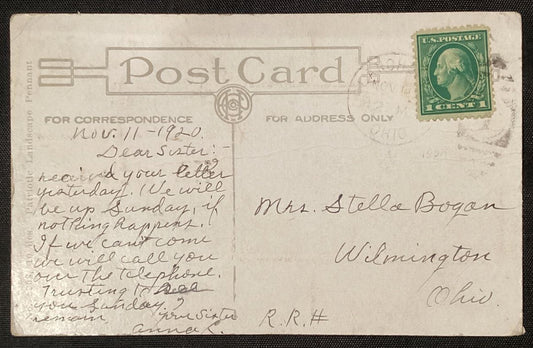 Post Card
FOR CORRESPONDENCE
FOR ADDRESS ONLY
U.S. POSTAGE
1 CENT 1
NOV
OHIO
Patriotic Landscape Pennant
Nov. 11 - 1920.
Dear Sister:-
received your letter
yesterday. We will
be up Sunday, if
nothing happens.
If we can't come
we will call you
over the telephone.
Trusting to see
you Sunday. I
remain your Sister
Anna L.
Mrs. Stella Bogan
Wilmington
Ohio.
R.R.#